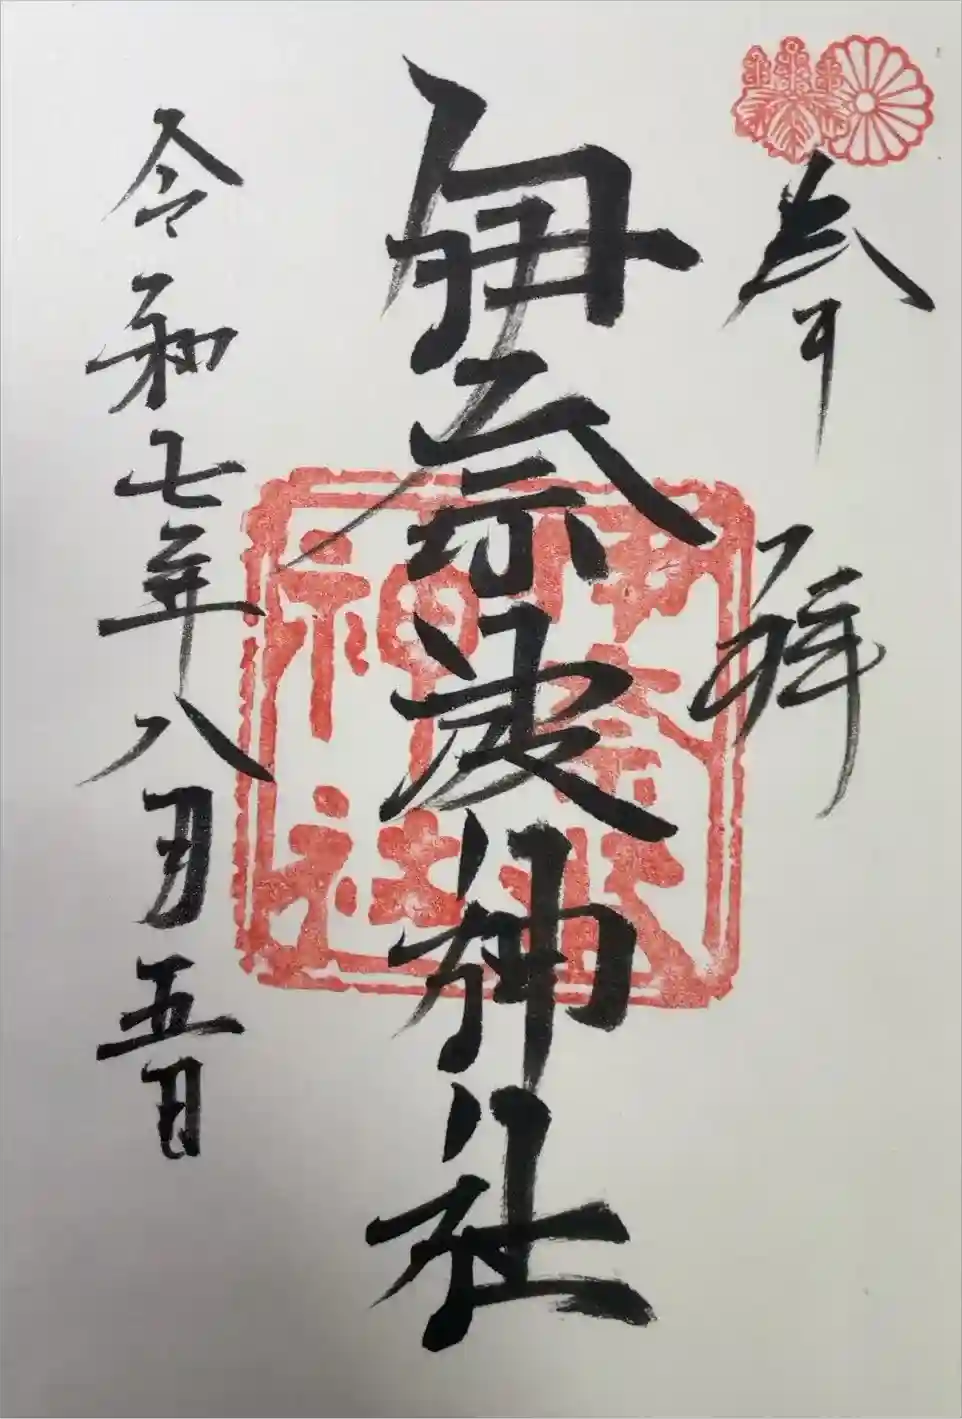 参拝
伊奈波神社
伊奈波神社
令和七年八月五日